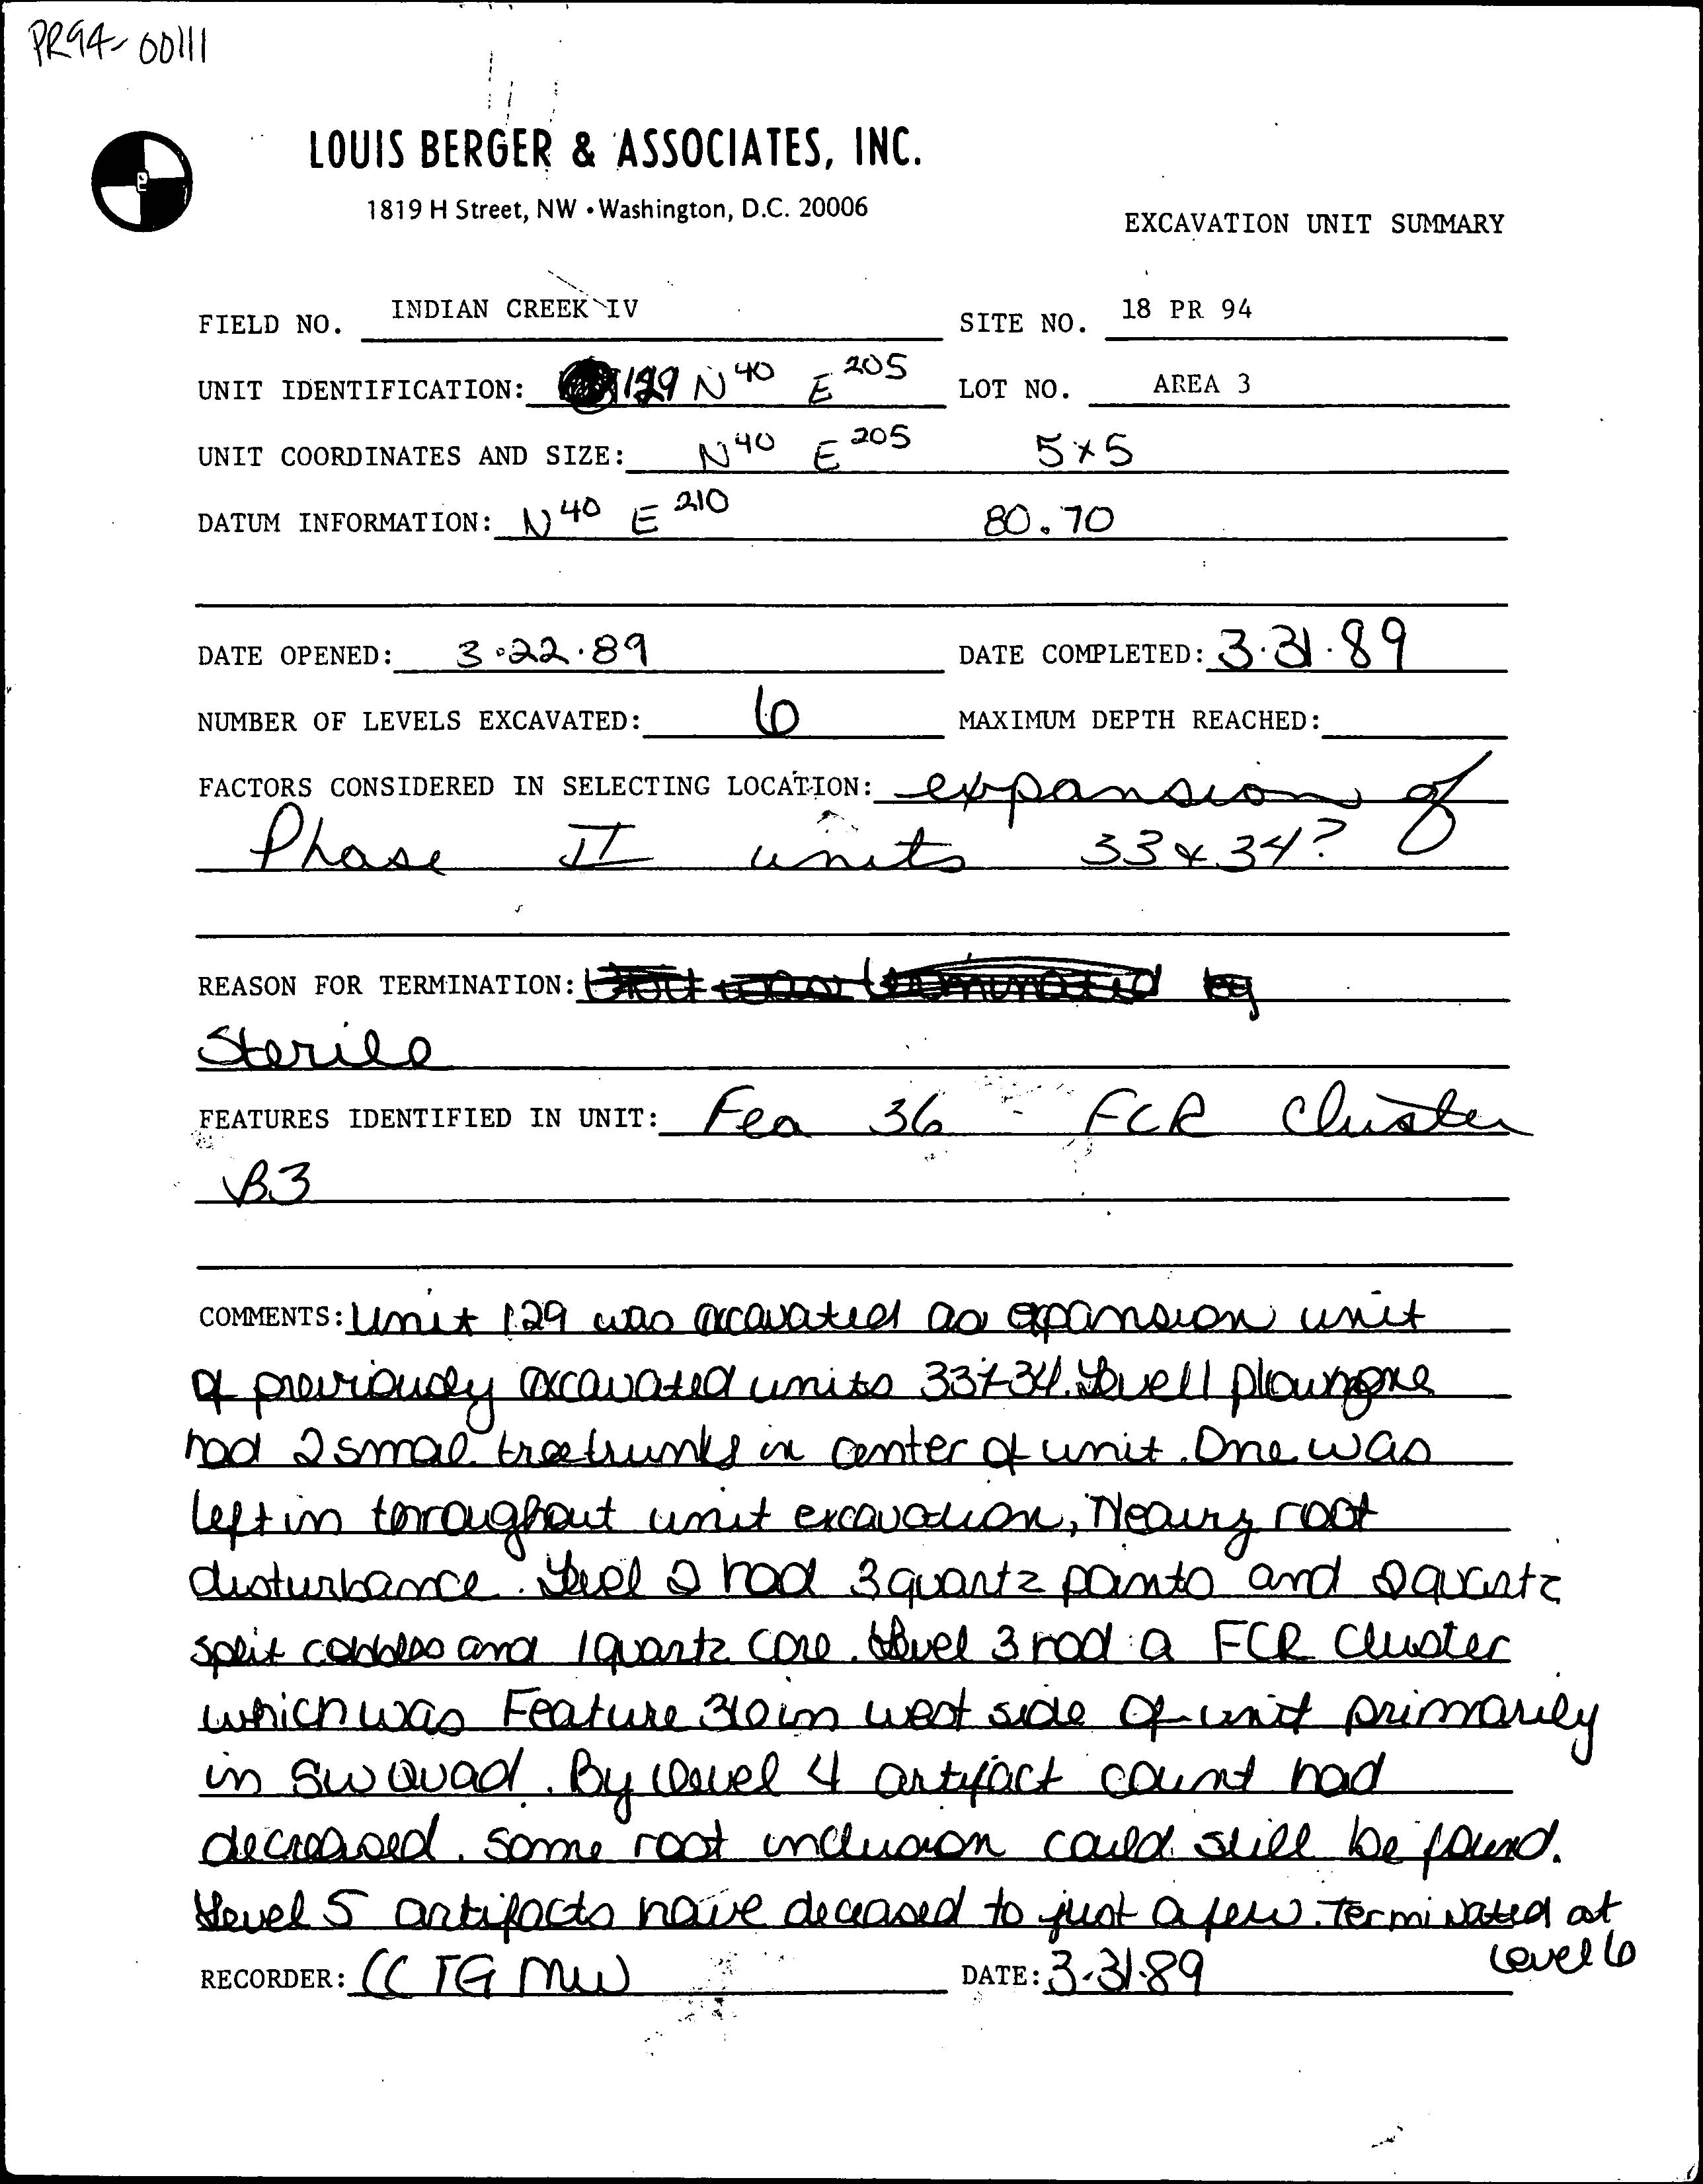 PR94-00111
LOUIS BERGER & ASSOCIATES, INC.
1819 H Street, NW • Washington, D.C. 20006
EXCAVATION UNIT SUMMARY
FIELD NO. INDIAN CREEK IV SITE NO. 18 PR 94
UNIT IDENTIFICATION: 129 N40 E205 LOT NO. AREA 3
UNIT COORDINATES AND SIZE: N40 E205 5x5
DATUM INFORMATION: N40 E210 80.70
DATE OPENED: 3.22.89 DATE COMPLETED: 3.31.89
NUMBER OF LEVELS EXCAVATED: 6 MAXIMUM DEPTH REACHED:
FACTORS CONSIDERED IN SELECTING LOCATION: expansion of
Phase II units 33 & 34?
REASON FOR TERMINATION: Unit was terminated by
Sterile
FEATURES IDENTIFIED IN UNIT: Fea 36 - FCR Cluster
B3
COMMENTS: Unit 129 was excavated as expansion unit
of previously excavated units 33+34. Level 1 plowzone
had 2 small tree trunks in center of unit. One was
left in throughout unit excavation, Heavy root
disturbance. Level 2 had 3 quartz points and 2 quartz
split cobbles and 1 quartz core. Level 3 had a FCR Cluster
which was Feature 36 in west side of unit primarily
in SW Quad. By level 4 artifact count had
decreased. some root inclusion could still be found.
Level 5 artifacts have deceased to just a few. Terminated at
level 6
RECORDER: CC TG MW DATE: 3-31-89